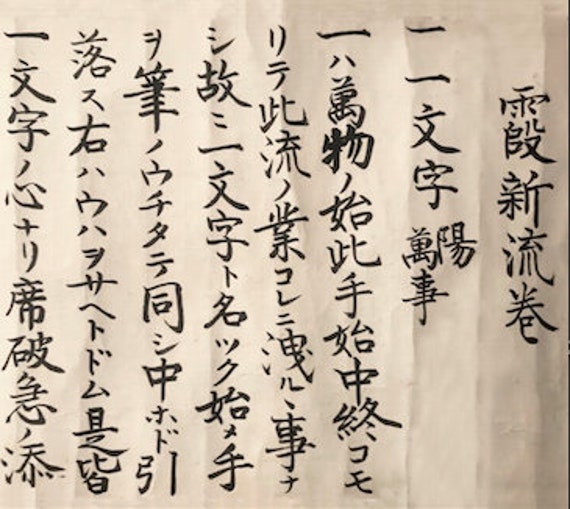 霞新流巻
一一文字 陽萬事
一ハ萬物ノ始此手始中終ヽコモ
リテ此流ノ業コレニ洩ルヽ事ナ
シ故ミ一文字ト名ツク始メ手
ヲ筆ノウチタテ同シ中ホド引
落ス右ハウハヲサヘトドム是皆
一文字ノ心ナリ席破急ノ添